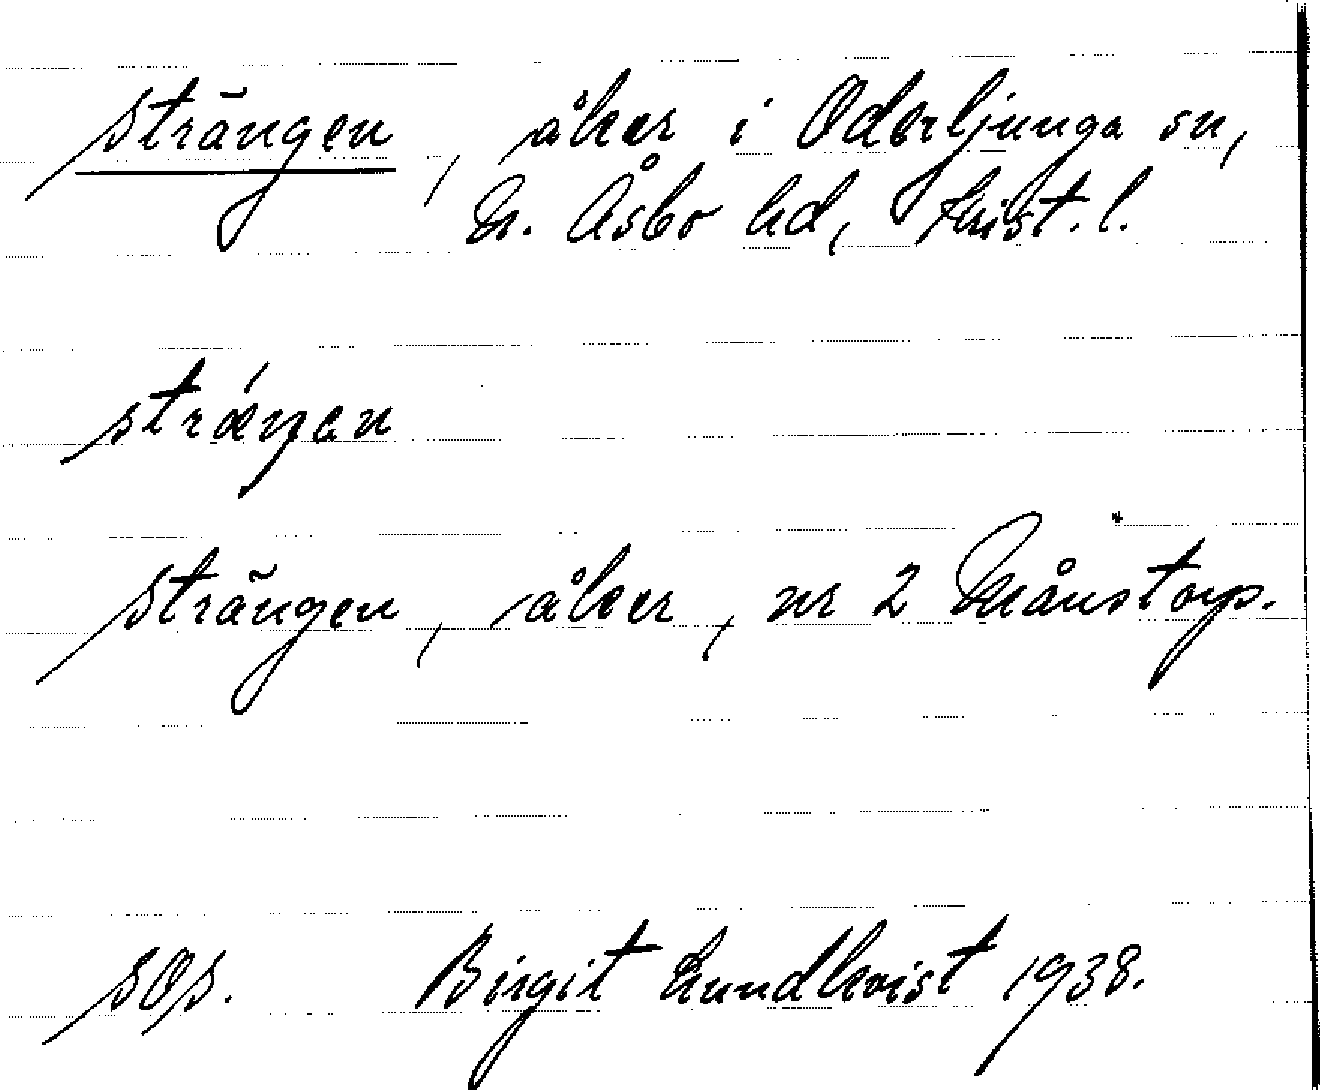 strängen, åker i Oderljunga sn,
N. Åsbo hd, Krist. l.
strǽŋen
strängen, åker, nr 2 Månstorp.
Birgit Lundkvist 1938.